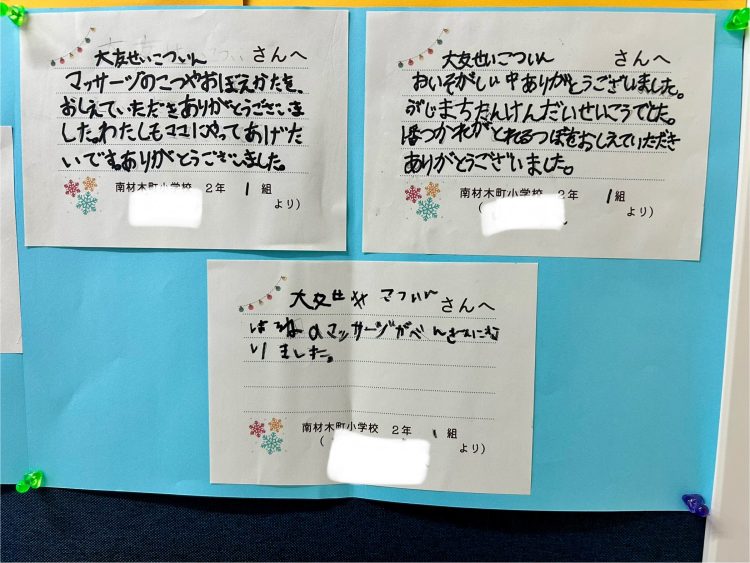 大友せいこついん さんへ
マッサージのこつやおぼえかたを、
おしえていただきありがとうございま
した。わたしもママにやってあげた
いです。ありがとうございました。
南材木町小学校 2年 1組
より)
大友せいこついん さんへ
おいそがしい中ありがとうございました。
ぶじまちたんけんだいせいこうでした。
1番つかれがとれるつぼをおしえていただき
ありがとうございました。
南材木町小学校 2年 1組
( より)
大友せ こついん さんへ
ほねのマッサージがべんきょうにな
りました。
南材木町小学校 2年 1組
( より)